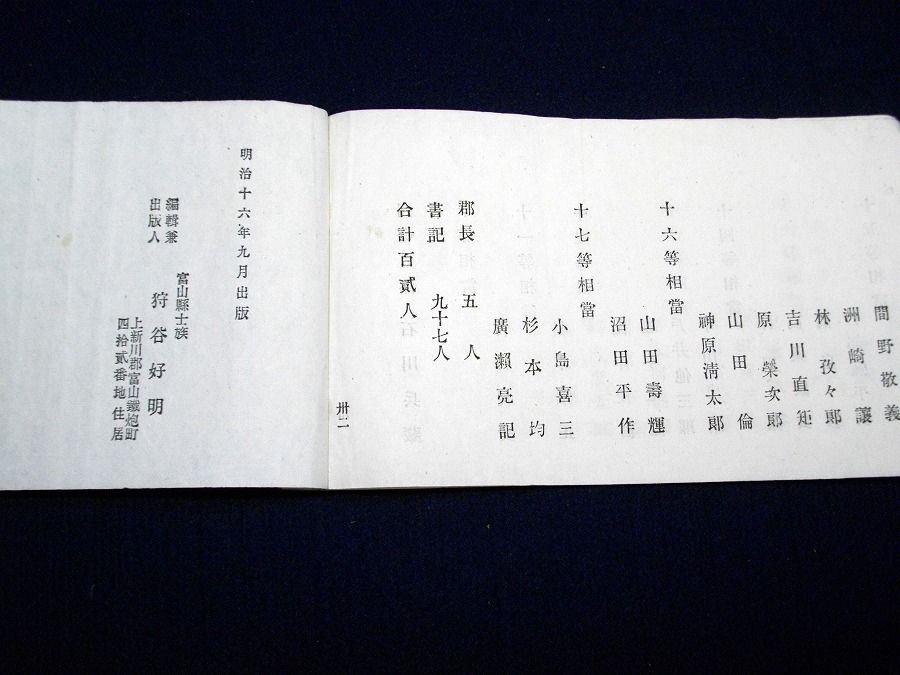 間野敬義
洲崎讓
林孜々郎
吉川直矩
原榮次郎
山田倫
神原淸太郎
十六等相當
山田壽輝
沼田平作
十七等相當
小島喜三
杉本均
廣瀨亮記
郡長 五人
書記 九十七人
合計百貳人
卅二
明治十六年九月出版
編輯兼
出版人
富山縣士族
狩谷好明
上新川郡富山鐵炮町
四拾貳番地住居